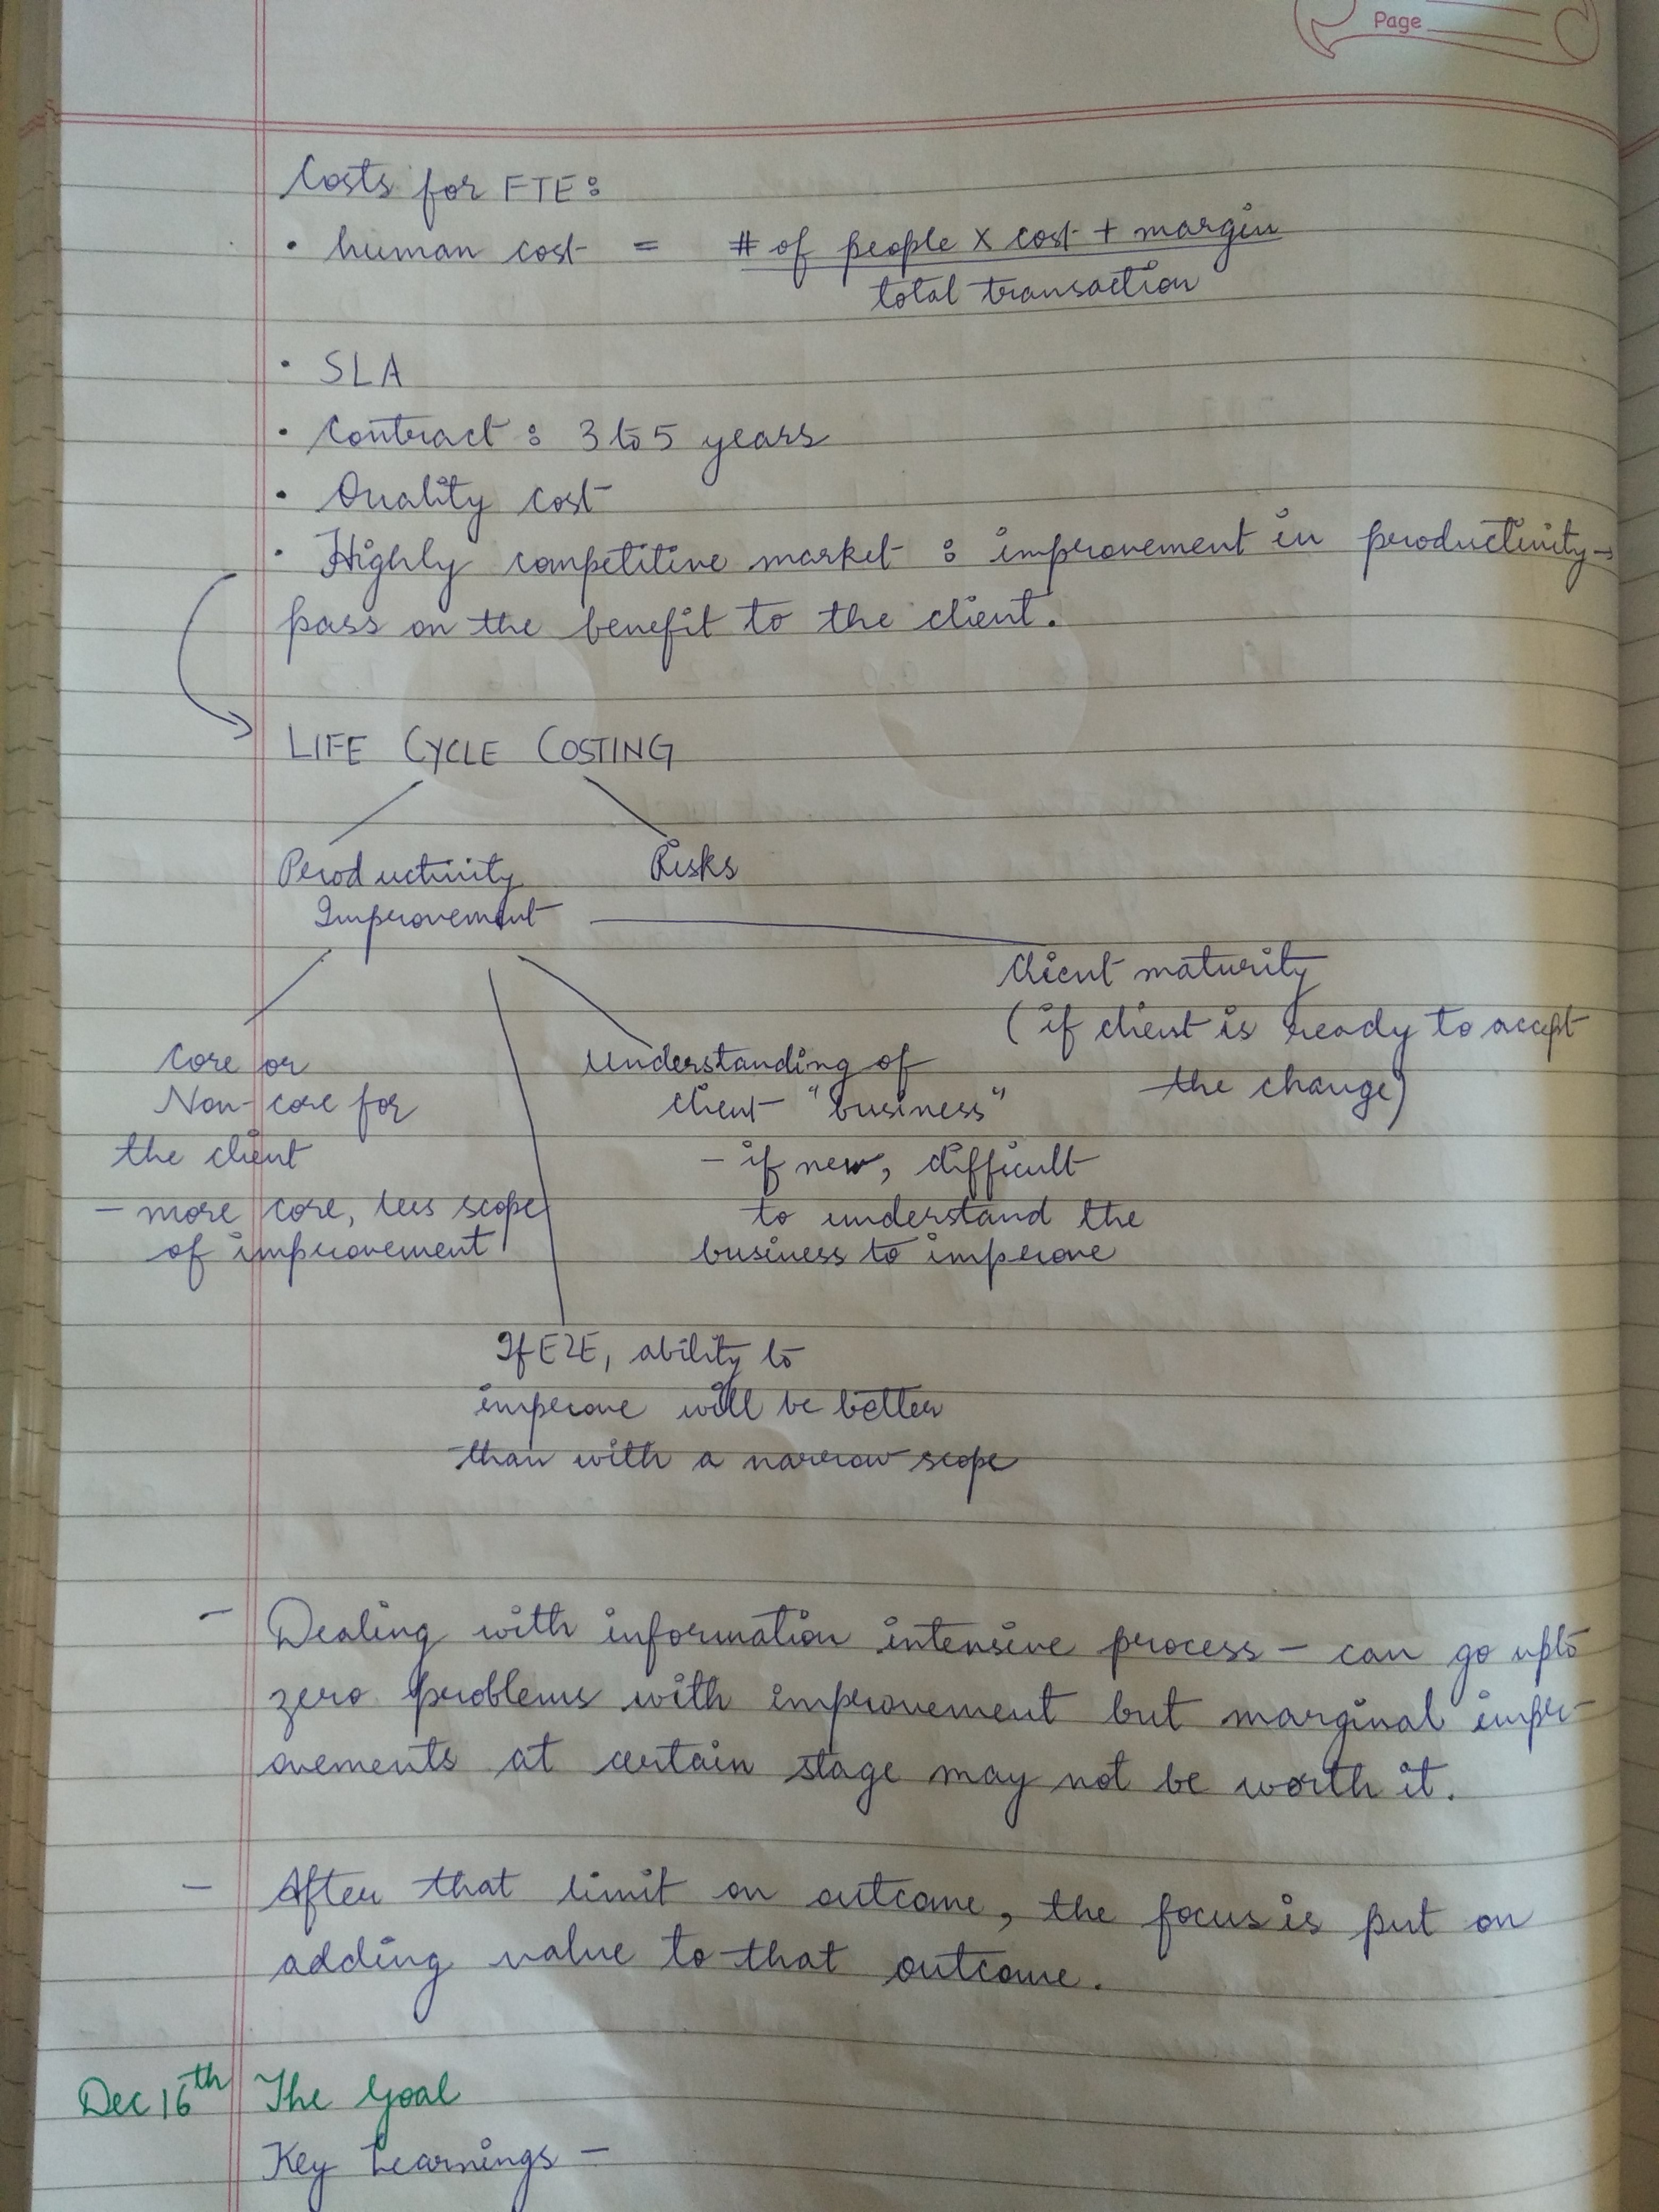 Page
Costs for FTE:
• human cost = # of people x cost + margin
total transaction
• SLA
• Contract : 3 to 5 years
• Quality cost
• Highly competitive market : improvement in productivity →
pass on the benefit to the client.
LIFE CYCLE COSTING
Productivity
Improvement
Risks
Client maturity
(if client is ready to accept
the change)
Core or
Non-core for
the client
- more core, less scope
of improvement
Understanding of
client "business"
- if new, difficult
to understand the
business to improve
If E2E, ability to
improve will be better
than with a narrow scope
- Dealing with information intensive process - can go upto
zero problems with improvement but marginal impr-
ovements at certain stage may not be worth it.
- After that limit on outcome, the focus is put on
adding value to that outcome.
Dec 16th The Goal
Key Learnings -